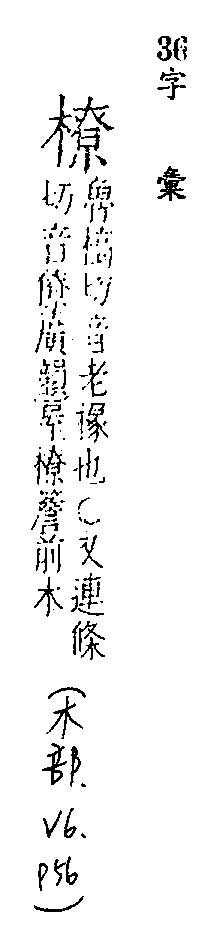 36
字彙
橑
魯皓切音老椽也○又連條
切音僚廣韻屋橑簷前木
(木部.V6.P56)